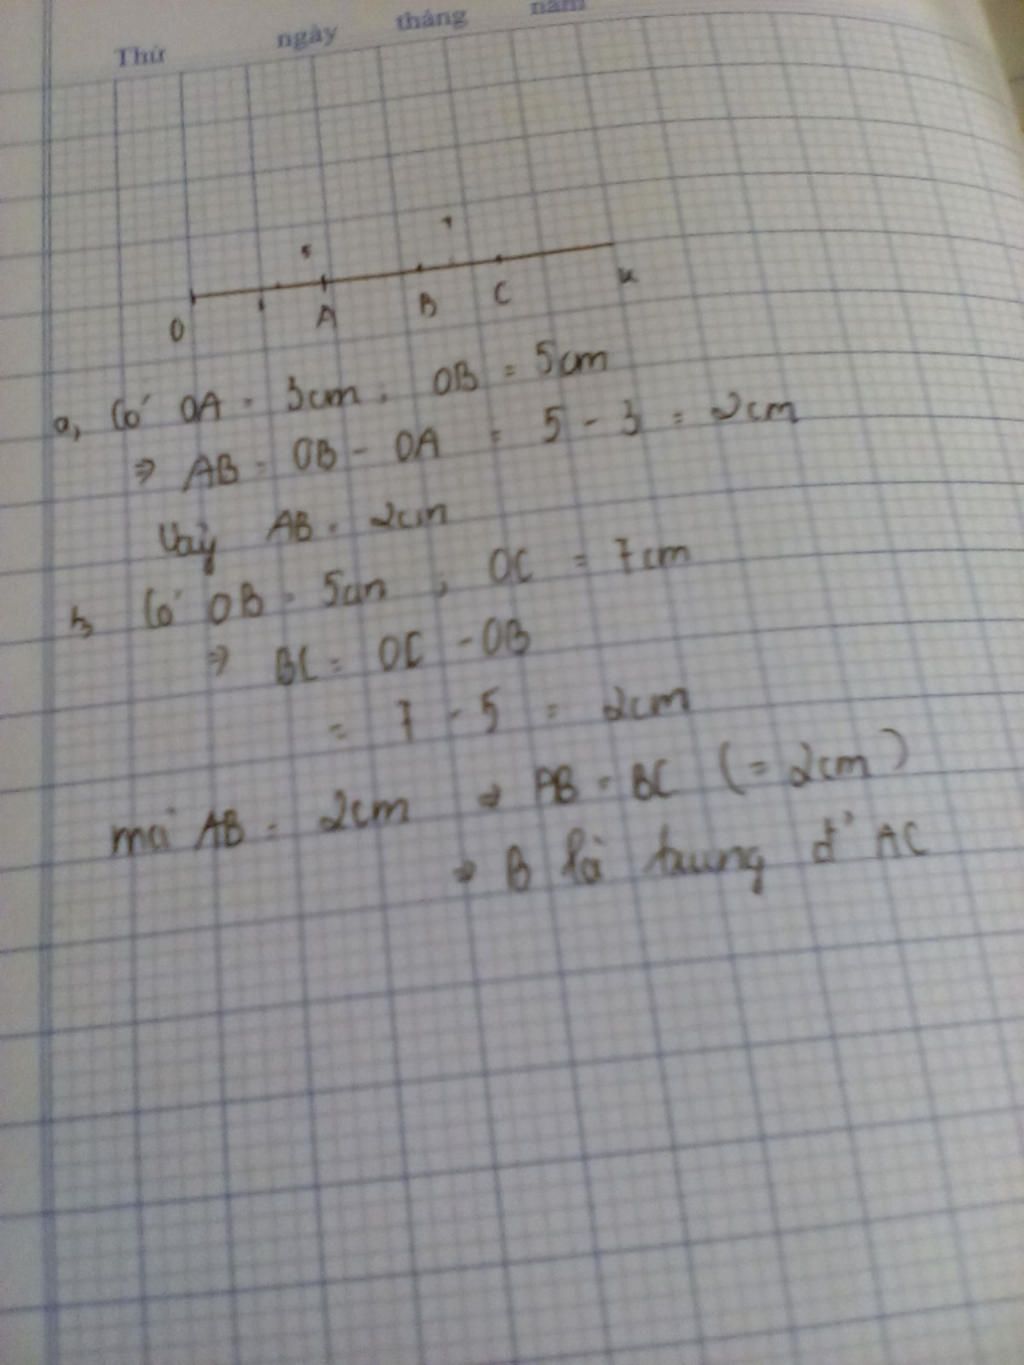 Thứ ngày tháng năm
O A B C x
a, Có OA = 3cm, OB = 5cm
⇒ AB = OB - OA = 5 - 3 = 2cm
Vậy AB = 2cm
b, Có OB = 5cm, OC = 7cm
⇒ BC = OC - OB
= 7 - 5 = 2cm
mà AB = 2cm ⇒ AB = BC (= 2cm)
⇒ B là trung đ' AC